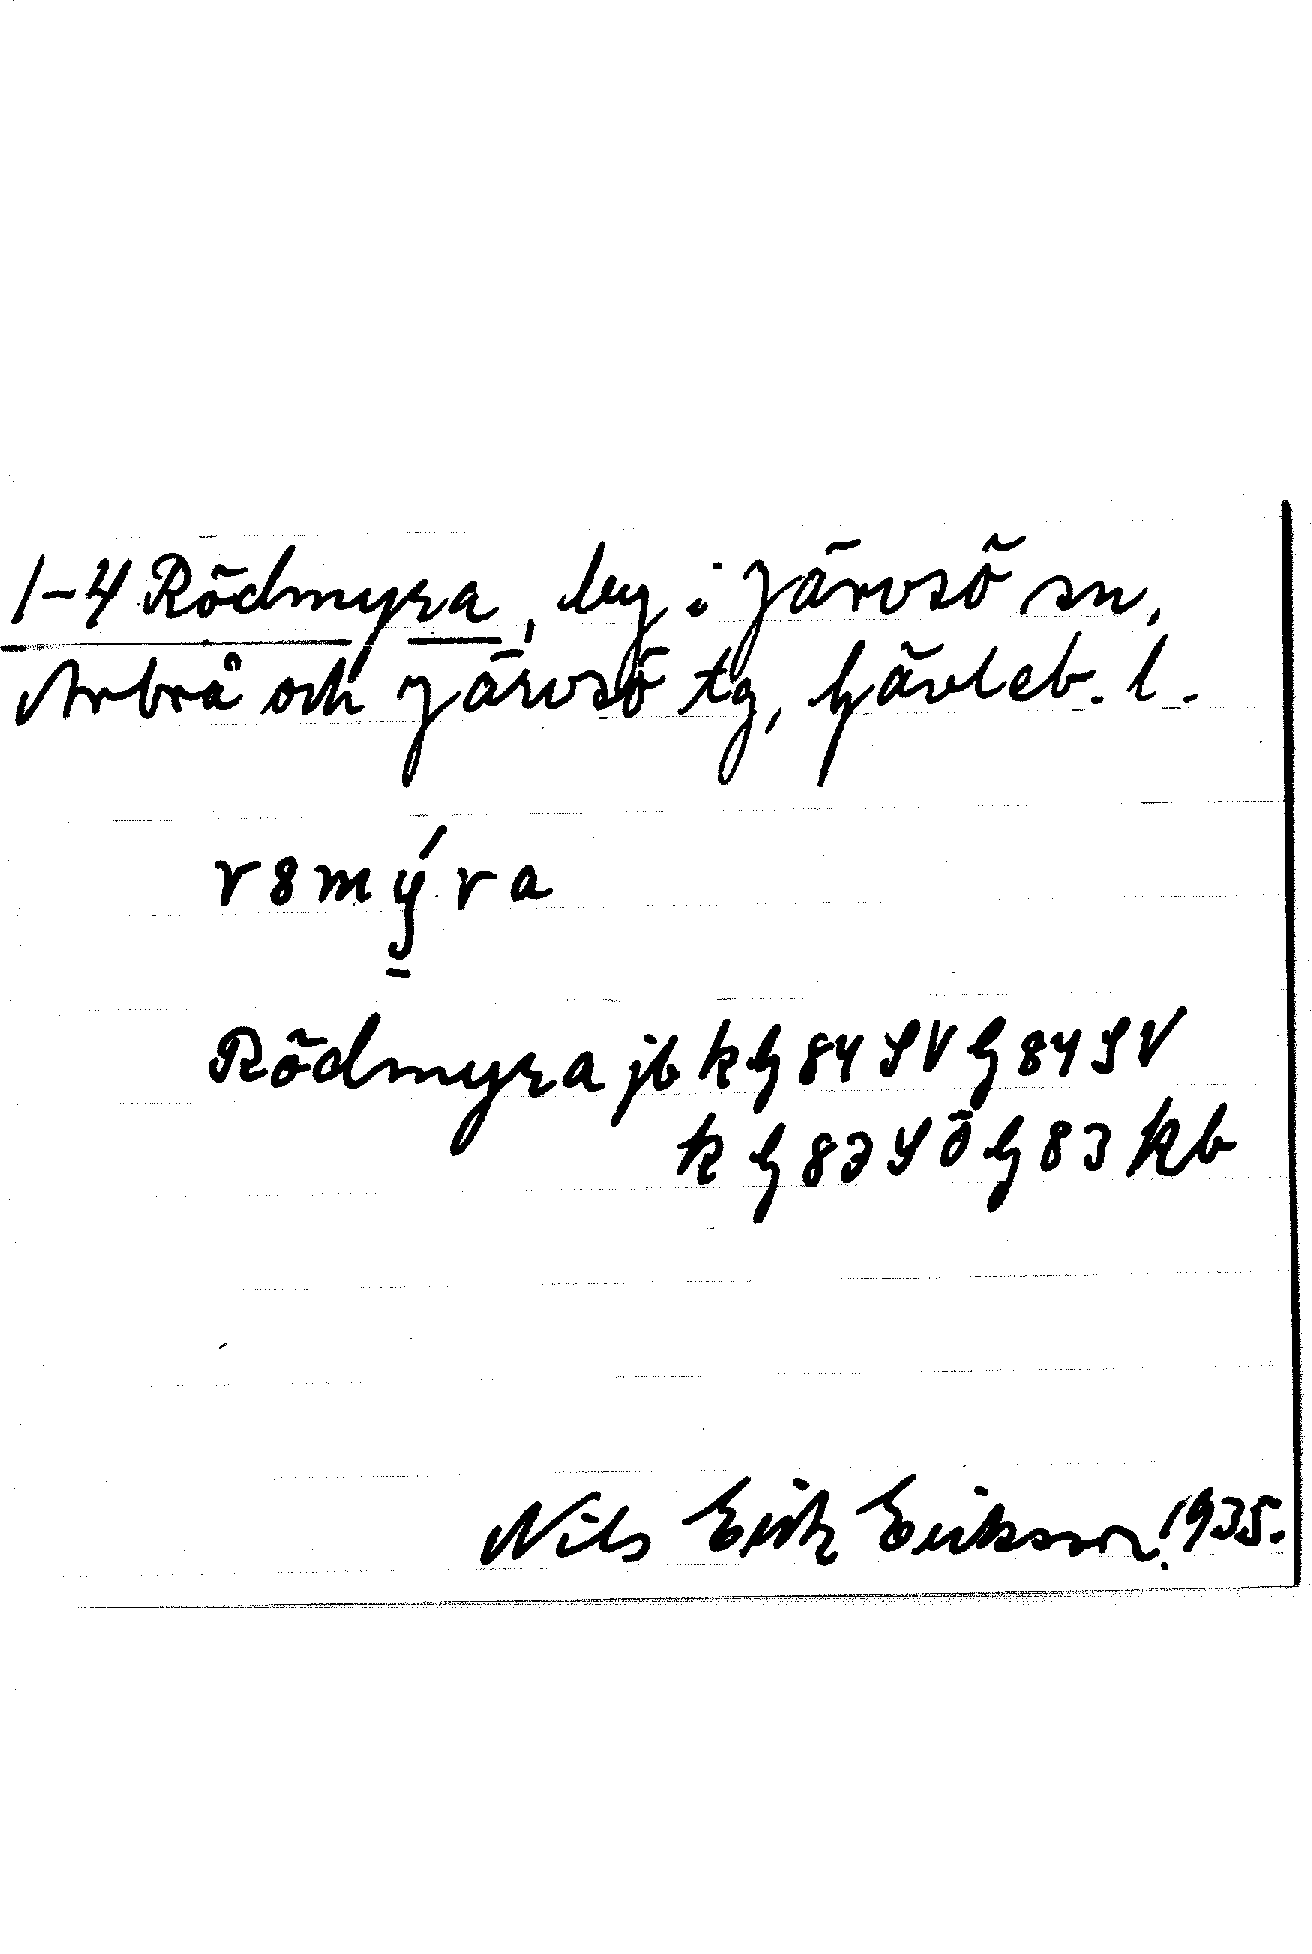 1-4 Rödmyra, by i Järvsö sn,
Arbrå och Järvsö tg, Gävleb. l.
r8mýra
Rödmyra jb k G 84 SV G 84 SV
k G 83 SÖ G 83 kb
Nils Erik Eriksson. 1935.